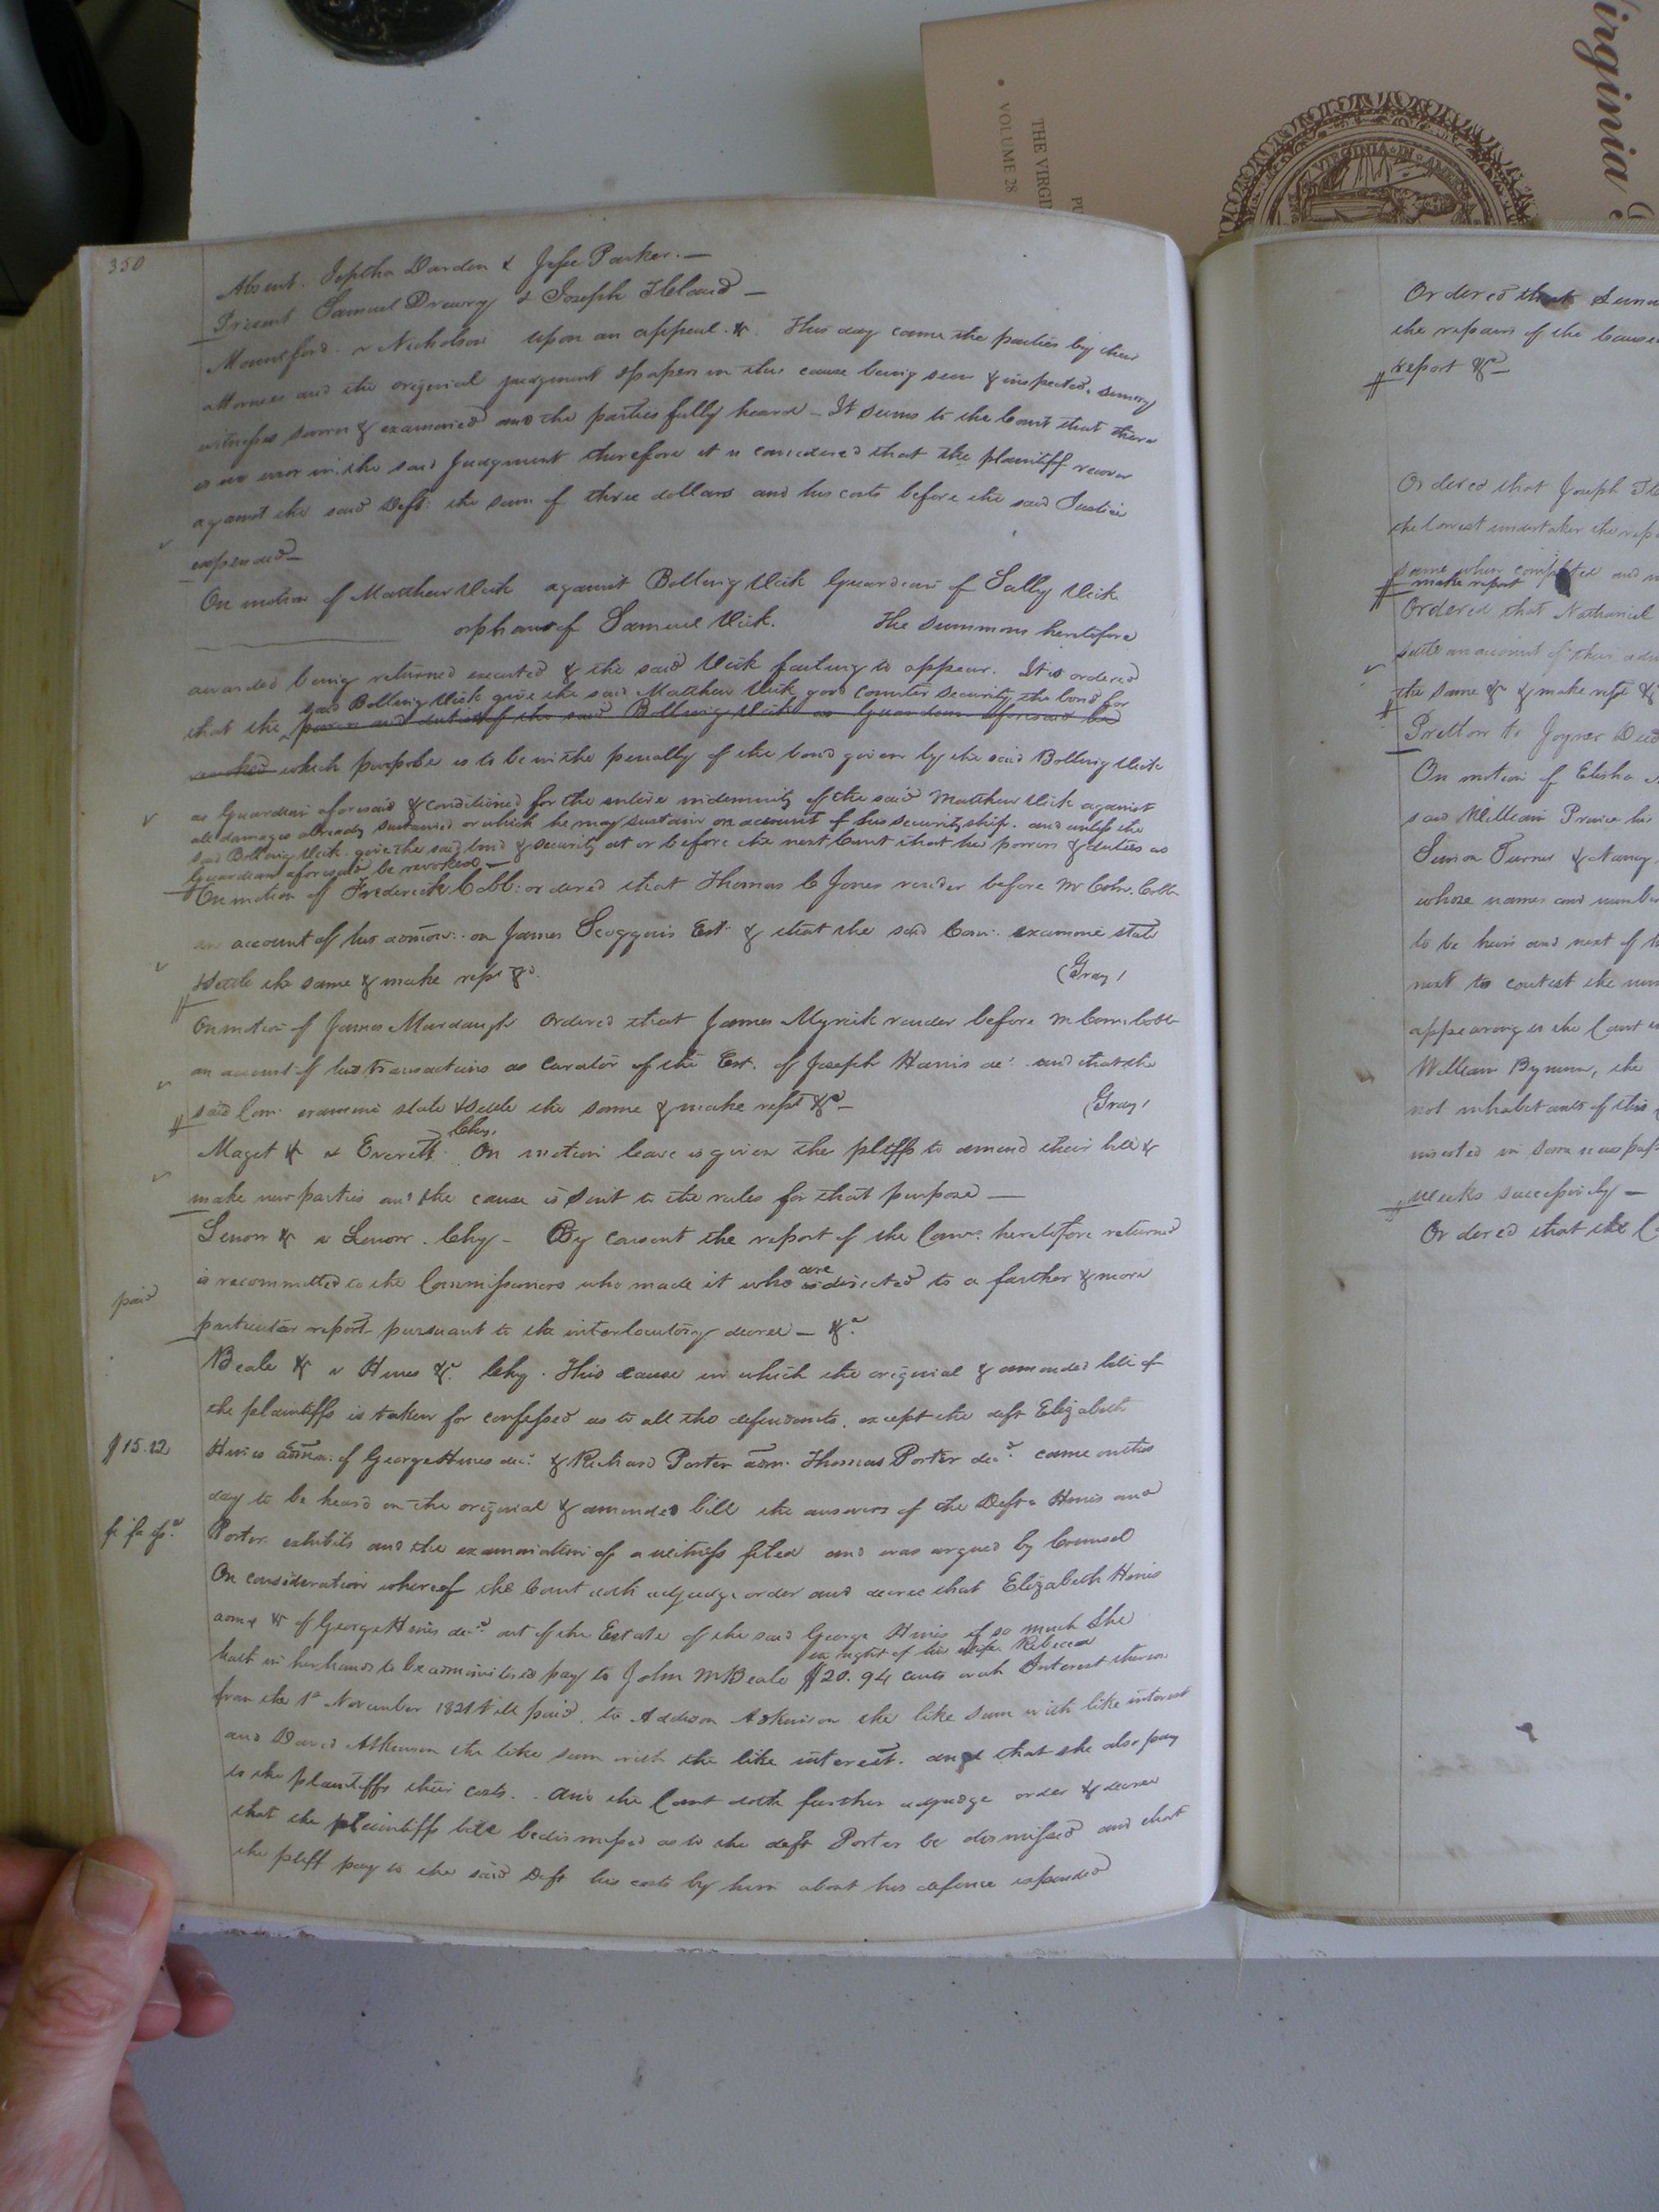 350
Absent. Jeptha Darden & Jesse Parker. —
Present Samuel Drewry & Joseph T Cloud —
Mountford v Nicholson upon an appeal. &c. This day came the parties by their
attornies and the original judgment & papers in this cause being seen & inspected, sundry
witnesses sworn & examined and the parties fully heard — It seems to the Court that there
is no error in the said Judgment therefore it is considered that the plaintiff recover
against the said Deft: the sum of three dollars and his costs before the said Justice
expended —
On motion of Matthew Vick against Bolling Vick Guardian of Sally Vick
orphan of Samuel Vick. The summons heretofore
awarded being returned executed & the said Vick failing to appear. It is ordered
said Bolling Vick give the said Matthew Vick good counter security, the bond for
that the power and duties of the said Bolling Vick as Guardian aforesaid be
revoked which purpose is to be in the penalty of the bond given by the said Bolling Vick
as Guardian aforesaid & conditioned for the entire indemnity of the said Matthew Vick against
all damages already sustained or which he may sustain on account of his securityship. and unless the
said Bolling Vick give the said bond & security at or before the next Court that his powers & duties as
Guardian aforesaid be revoked —
On motion of Frederick Cobb: ordered that Thomas C Jones render before Mr Comr. Cobb
an account of his admon: on James Scoggins Est. & that the said Com: examine state
& settle the same & make rept &c. (Gray)
On motion of James Murdaugh Ordered that James Myrick render before M Comr Cobb
an account of his transactions as Curator of the Est. of Joseph Harris dec: and that the
said Com: examine state & settle the same & make rept &c — (Gray)
Chy.
Maget &c v Everett On motion leave is given the pltffs to amend their bill &
make new parties and the cause is sent to the rules for that purpose —
Lenow &c v Lenow. Chy — By consent the report of the Comrs. heretofore returned
are
is recommitted to the Commissioners who made it who is directed to a farther & more
paid
particular report pursuant to the interlocutory decree — &c.
Beale &c v Hines &c. Chy. This cause in which the original & amended bill of
the plaintiffs is taken for confessed as to all the defendants, except the deft Elizabeth
$15.22
Hines admx. of George Hines dec: & Richard Porter adm. Thomas Porter decd. came on this
day to be heard on the original & amended bill the answers of the Defts Hines and
fi fa
Porter exhibits and the examination of a witness filed and was argued by Counsel
On consideration whereof the Court doth adjudge order and decree that Elizabeth Hines
admx &c of George Hines decd. out of the Estate of the said George Hines if so much she
in right of his wife Rebecca
hath in her hands to be administered pay to John M Beale $20.94 cents with Interest thereon
from the 1st November 1821 till paid, to Addison Atkinson the like sum with like interest
and David Atkinson the like sum with the like interest. and that she also pay
to the plaintiffs their costs. And the Court doth further adjudge order & decree
that the plaintiffs bill be dismissed as to the deft Porter be dismissed and that
the pltff pay to the said Deft his costs by him about his defence expended
Ordered that
the repairs of the
report &c —
Ordered that Joseph
the lowest undertaker the
same when completed and
make report
Ordered that Nathaniel
settle an account of their
the same &c & make rept &c
Pretlow to Joyner Deed
On motion of Elisha
said William
Turner & Nancy
whose names and number
to be heirs and next of
next to contest the
appearing to the Court
William Bynum, the
not inhabitants of this
inserted in some newspap
weeks successively —
Ordered that the
Virginia
THE VIRGI
VOLUME 28
PU
VIRGINIA IN AME